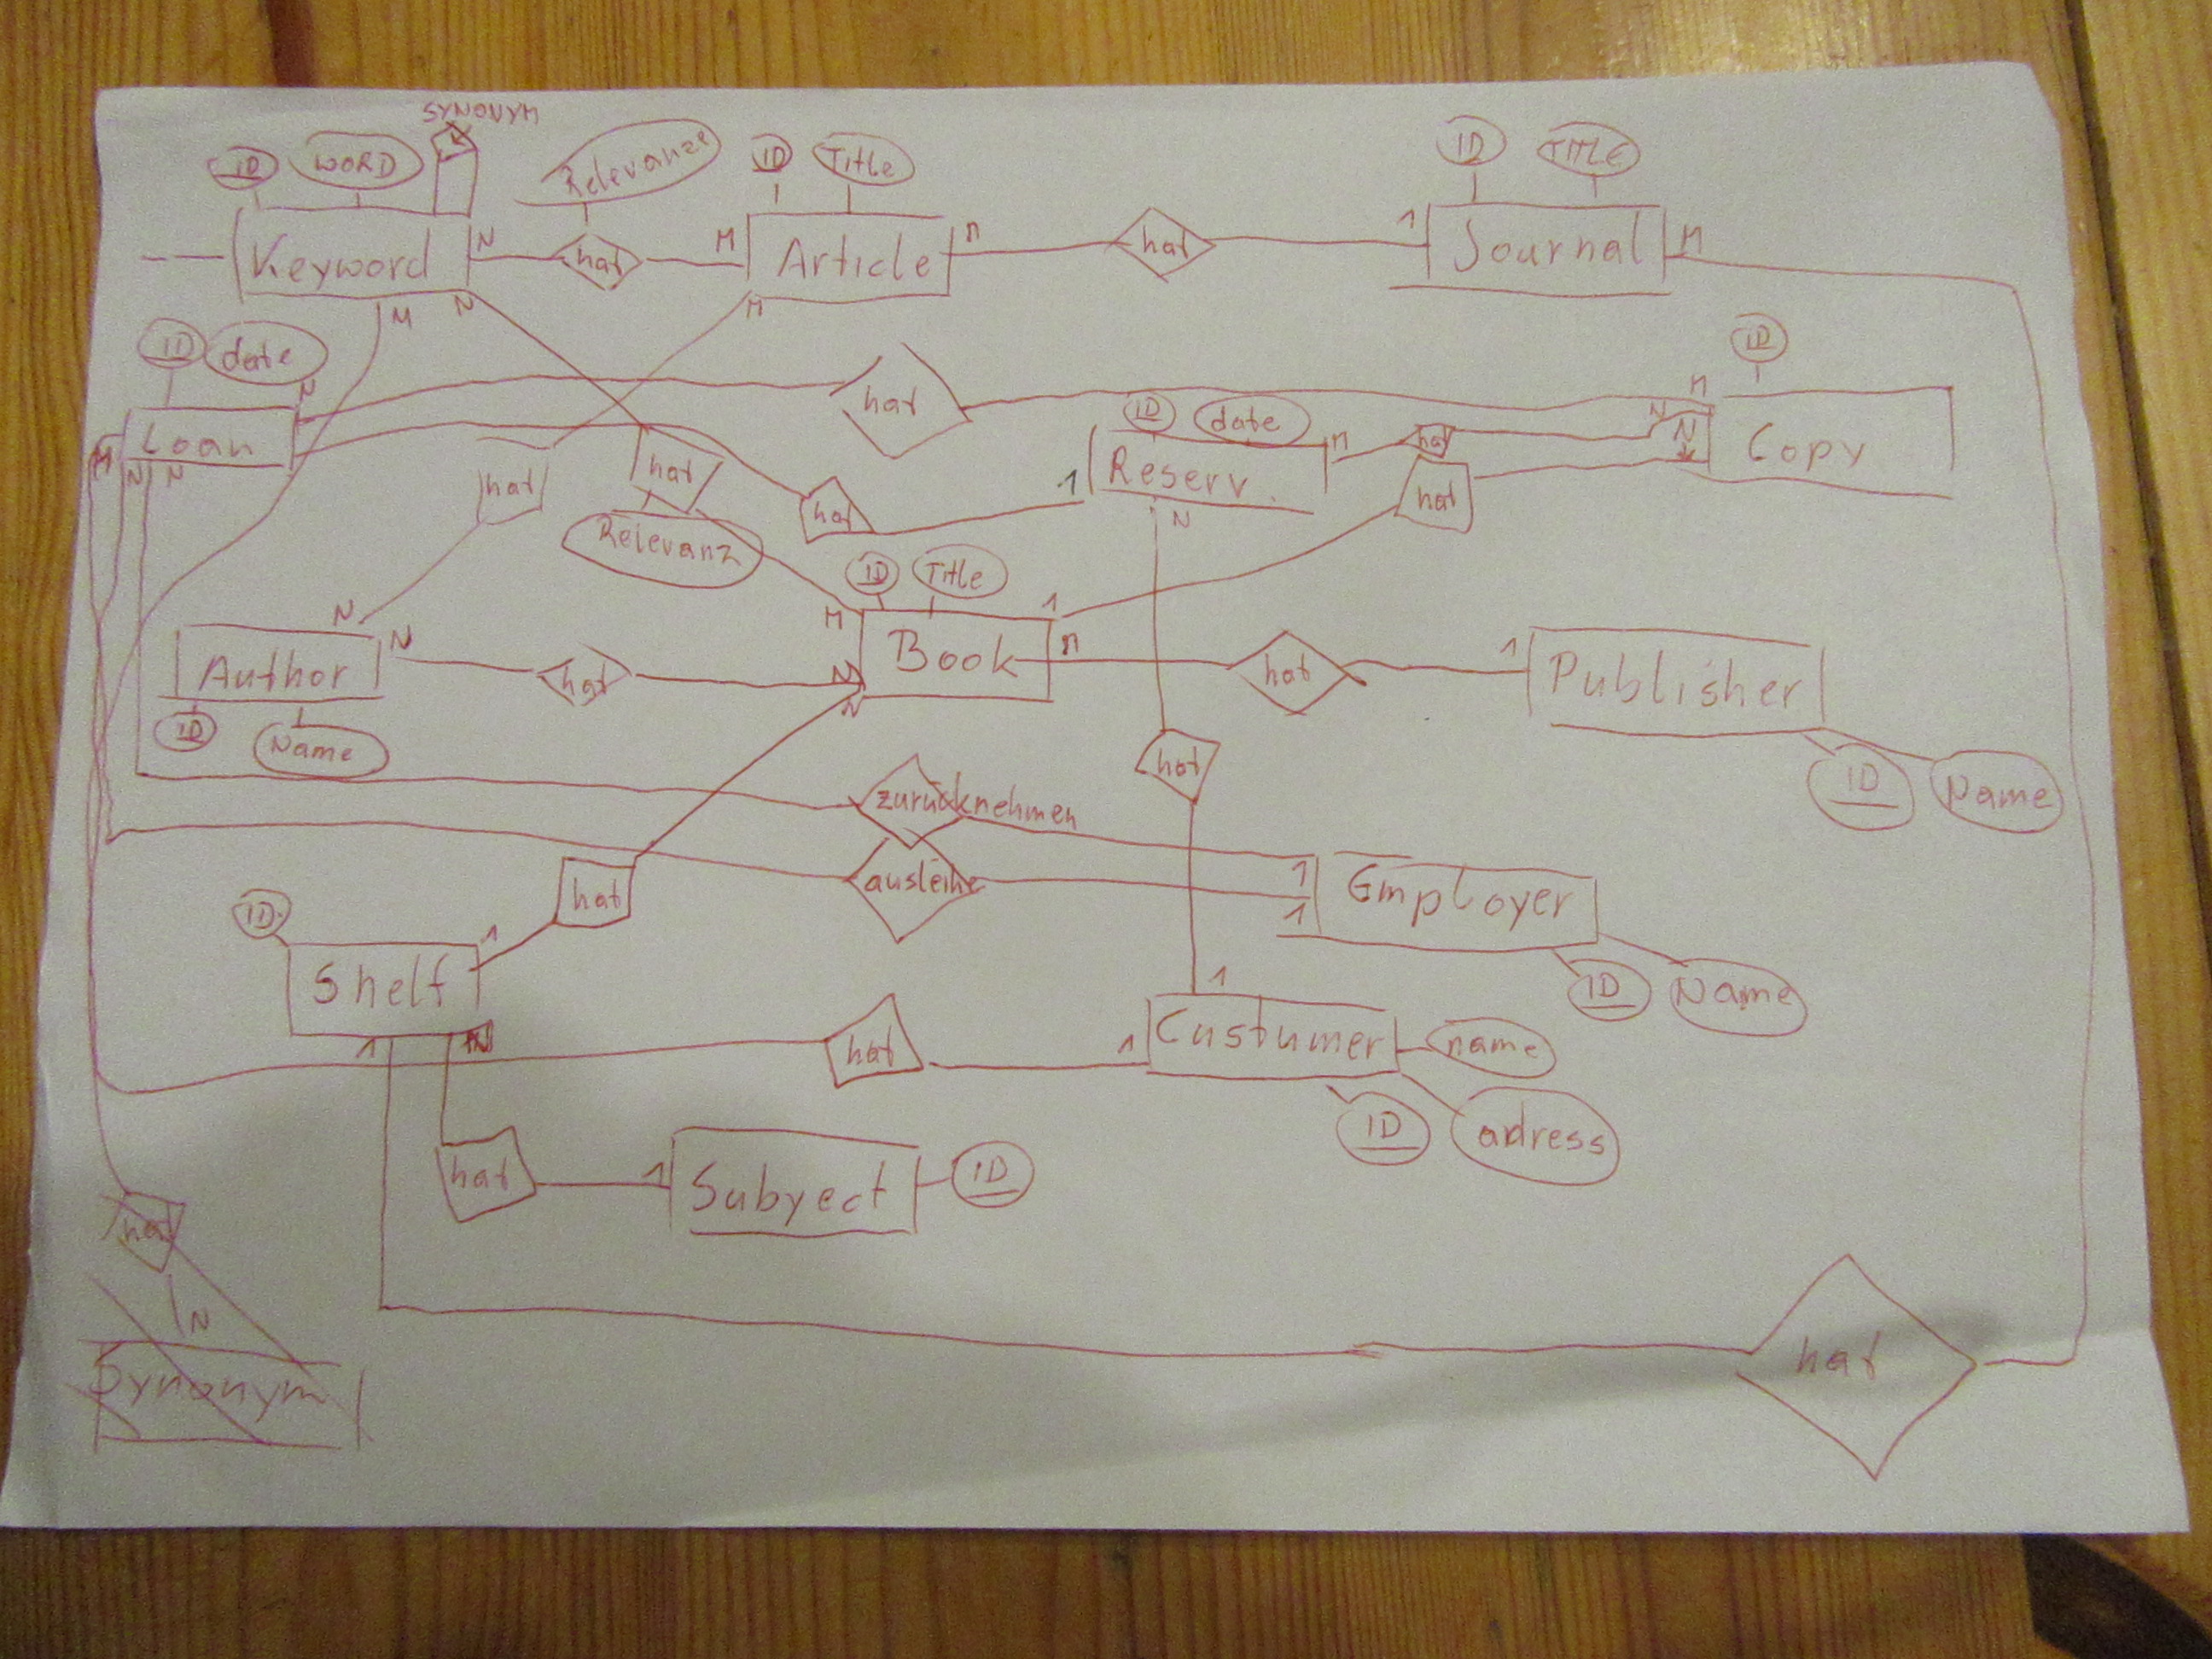 SYNONYM
ID WORD Relevanze ID Title ID TITLE
Keyword N hat M Article n hat 1 Journal M
M N M
ID date N ID
Loan hat M Copy
ID date n hat N
M N N hat hat 1 Reserv. hat N
Relevanz hat N
ID Title
N M 1
Author N hat N Book n hat 1 Publisher
ID Name N
hat ID Name
zurücknehmen
ausleihe 1 1 Employer
hat
ID 1 ID Name
Shelf 1
1 N hat 1 Custumer name
ID adress
hat 1 Subyect ID
hat
N
Synonym
hat